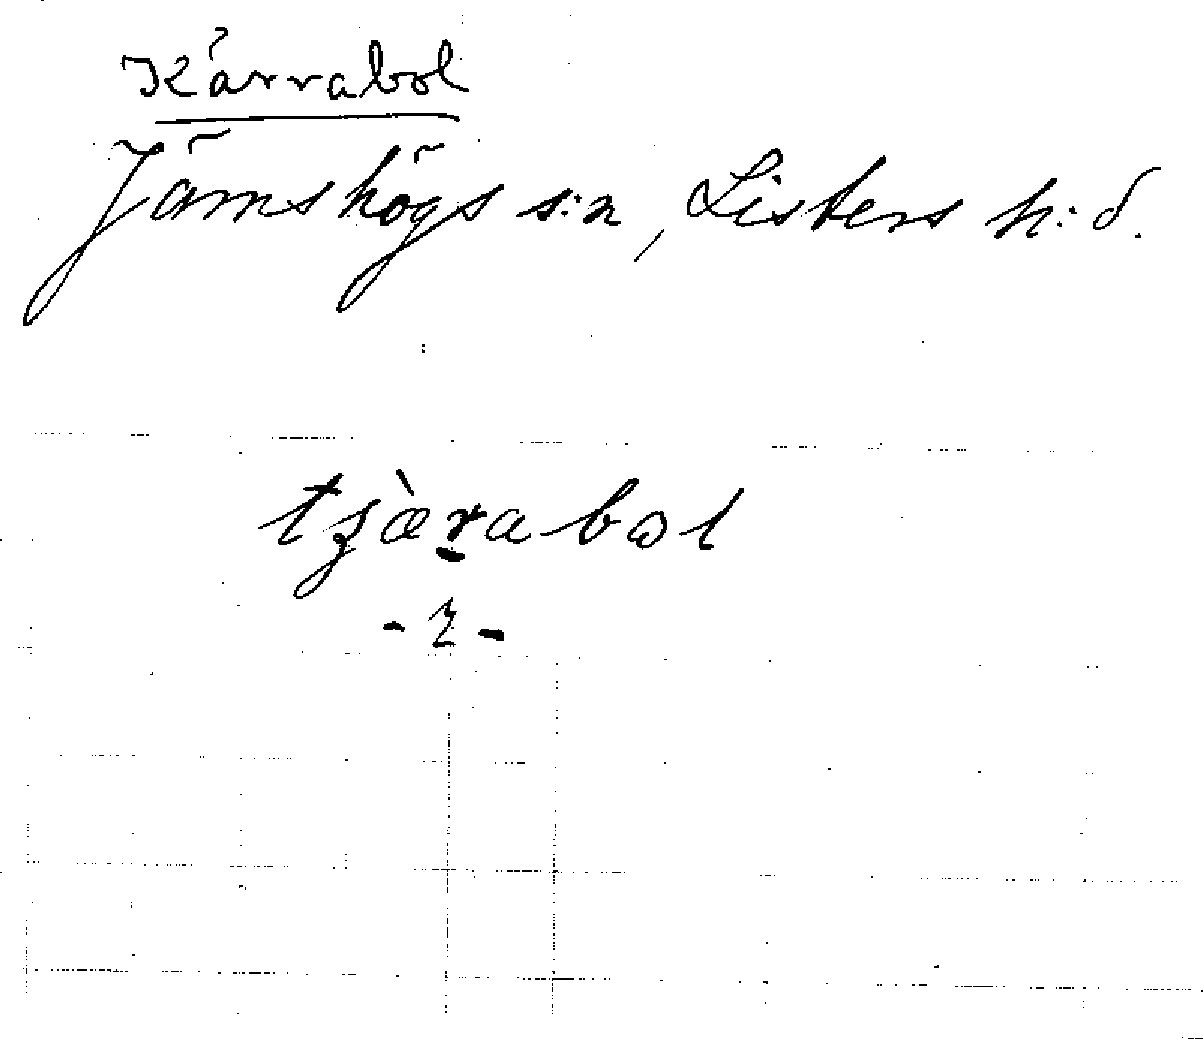 Kärrabol
Jämshögs s:n, Listers h:d.
tʂæ̀rabωl
- 2 -